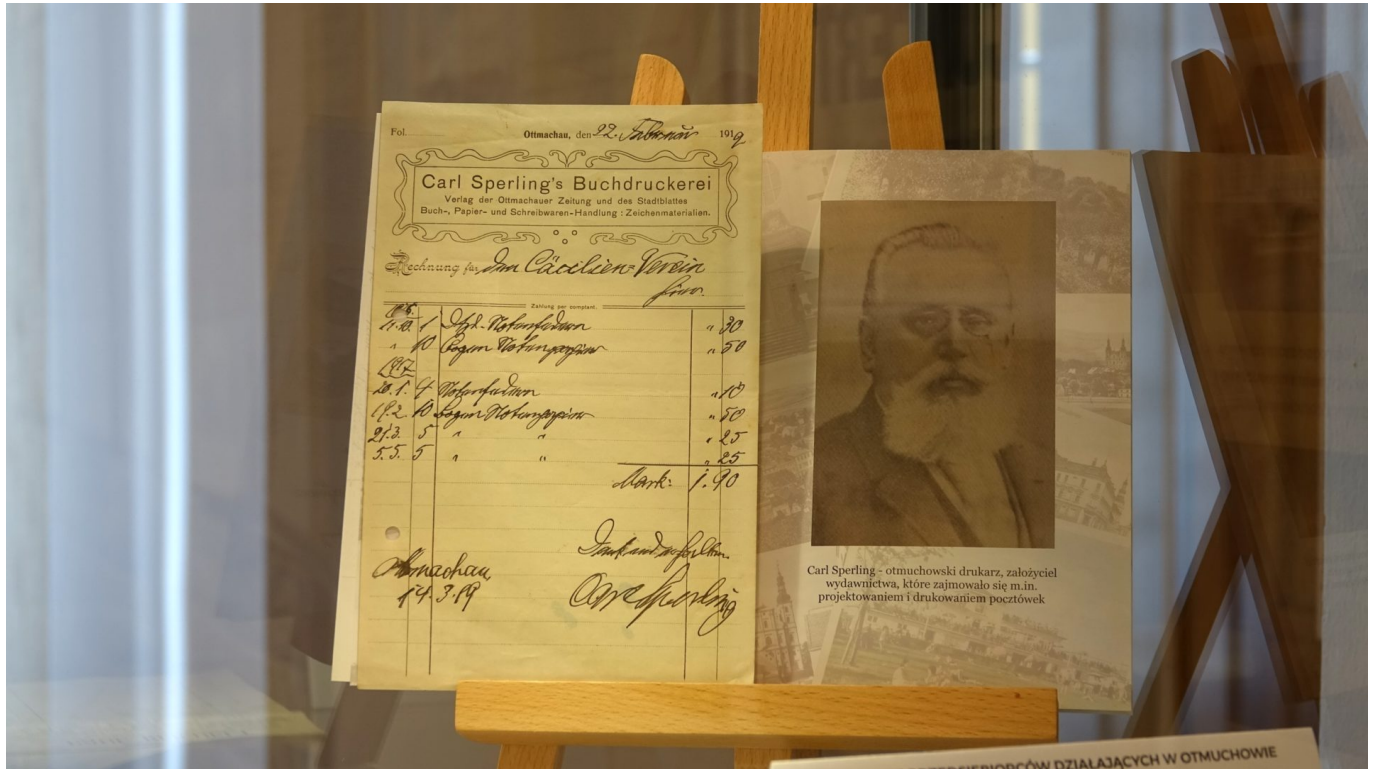 Fol.
Ottmachau, den 22. Februar 1919
Carl Sperling's Buchdruckerei
Verlag der Ottmachauer Zeitung und des Stadtblattes
Buch-, Papier- und Schreibwaren-Handlung : Zeichenmaterialien.
Rechnung für den Cäcilien-Verein
hier.
Zahlung per comptant.
11.10. 1 Dtzd. Notenfedern " 30
" 10 Bogen Notenpapier " 50
1917
20.1. 4 Notenfedern " 10
19.2. 10 Bogen Notenpapier " 50
21.3. 5 " " " 25
5.5. 5 " " " 25
Mark: 1.90
Dankend erhalten
Ottmachau,
14.3.19
Carl Sperling
Carl Sperling - otmuchowski drukarz, założyciel
wydawnictwa, które zajmowało się m.in.
projektowaniem i drukowaniem pocztówek
DZIAŁAJĄCYCH W OTMUCHOWIE